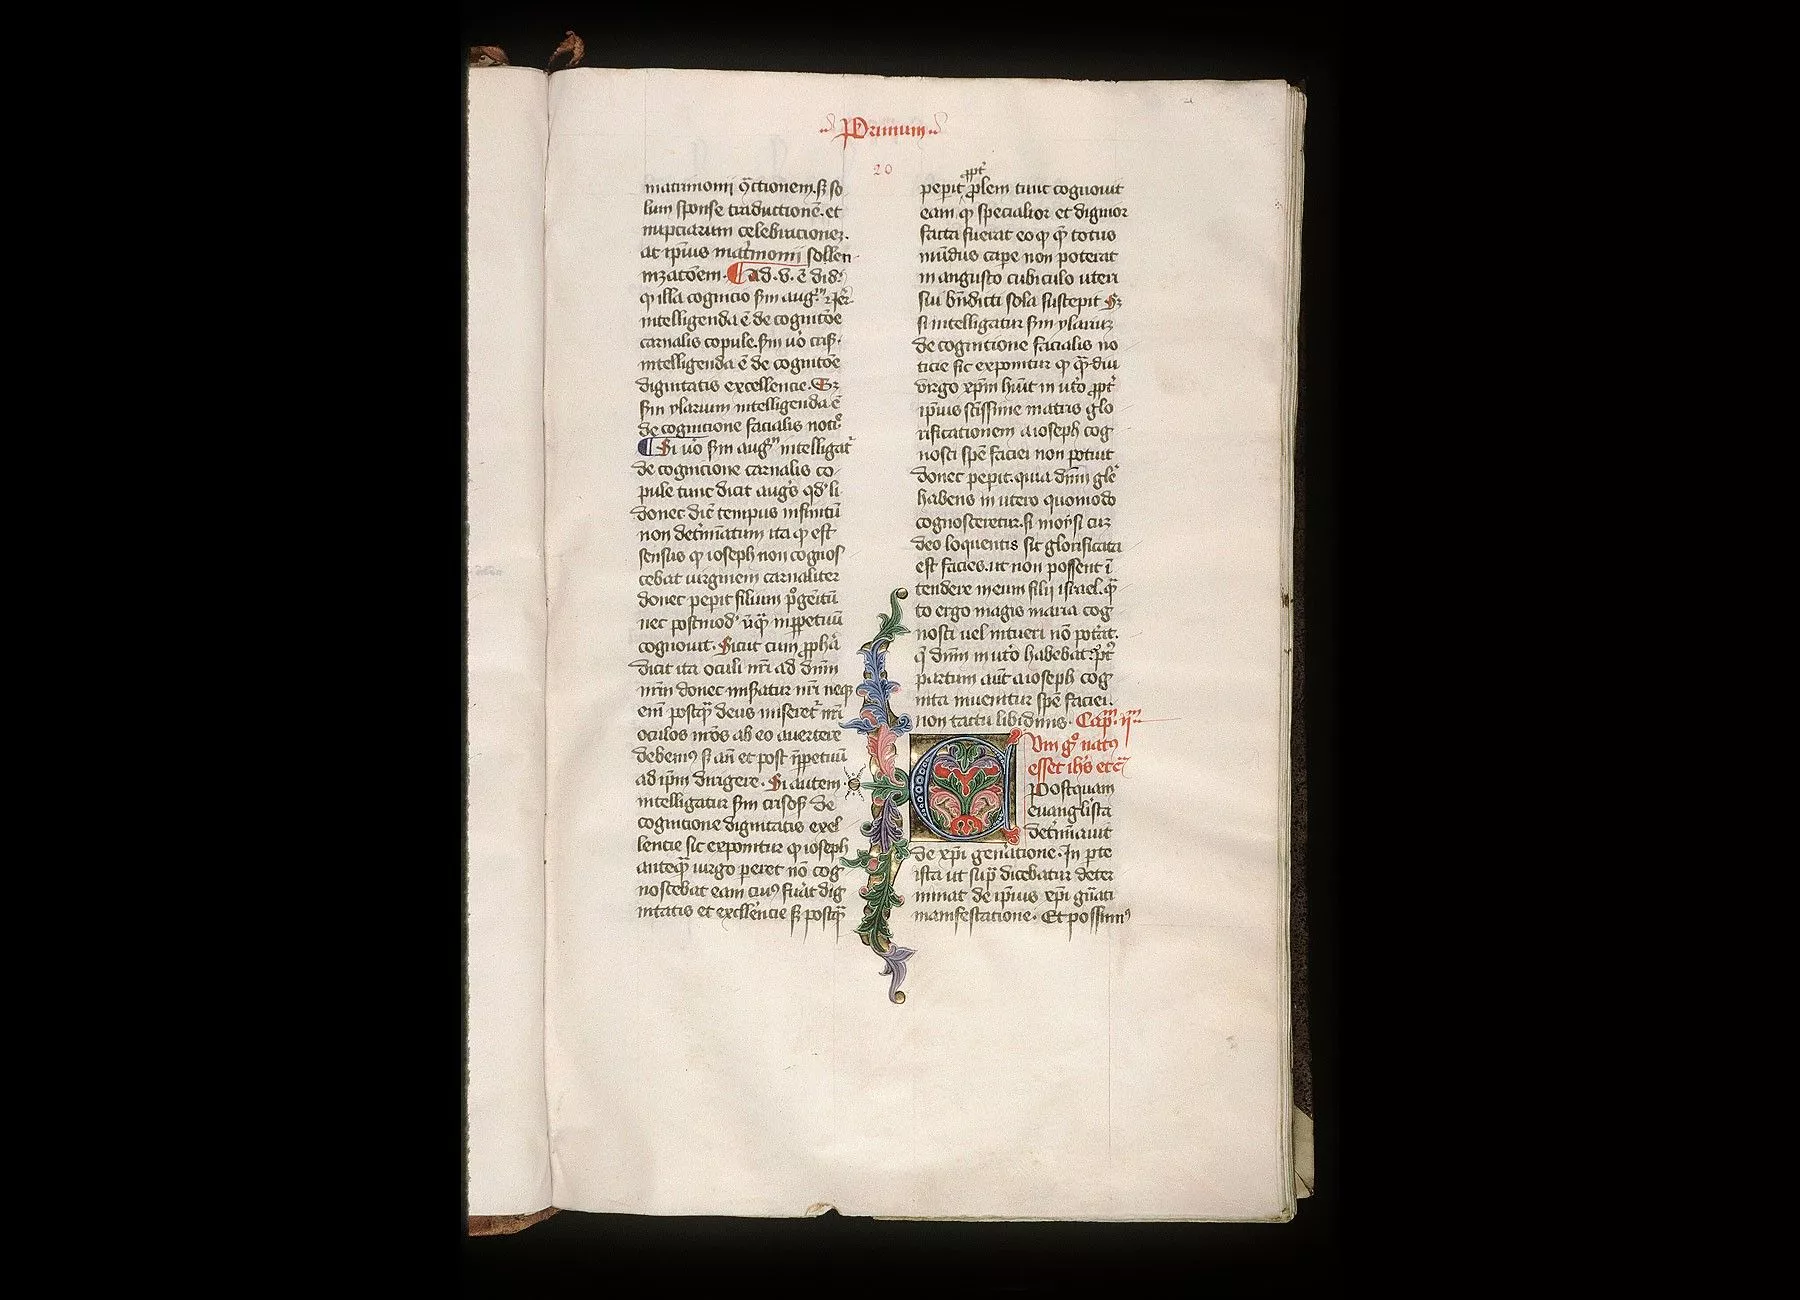 Primum
20
matrimonij ꝯctionem. sꝫ so
lum sponse traductionē. et
nupciarum celebracionez.
at ip̄ius mat̓monij sollen
nizatōem. ad. v. ē di
ꝙ illa cognicio sm̄ aug
intelligenda ē de cognitōe
carnalis copule. sm̄ uo cris
intelligenda ē de cognitōe
dignitatis excellencie. Sz
sm̄ ylarium intelligenda ē
de cognicione facialis notic
Si uo sm̄ aug intelligat̓
de cognicione carnalis co
pule tunc dicit augs qd li
donec dic̄ tempus infinitū
non det̓minatum ita ꝙ est
sensus ꝙ ioseph non cognos
cebat uirginem carnaliter
donec pepit filium p̓genitū
nec postmod inꝑpetuū
cognouit. Sicut cum ꝓpha
dicit ita oculi nr̄i ad dnm̄
nr̄m donec misatur nr̄i neqꝫ
eni postꝙ̄ deus miseret̓ nr̄i
oculos nr̄os ab eo auertere
debemꝰ sꝫ an̄ et post inꝑpetuū
ad ip̄m dirigere. Si autem
intelligatur sm̄ crisos de
cognicione dignitatis excel
lencie sic exponitur ꝙ ioseph
anteꝙ̄ uirgo peret nō cog
noscebat eam ciuꝰ fuat dig
nitatis et excellencie sꝫ postꝙ̄
ꝓpt̓
pepit ꝓlem tunc cognouit
eam ꝙ specialior et dignior
facta fuerat eo ꝙ q̄ totus
mūdus cape non poterat
in angusto cubiculo uteri
sui bn̄dicti sola suscepit Sz
si intelligatur sm̄ ylariuz
de cognicione facialis no
ticie sic exponitur ꝙ diu
uirgo xp̄m hūit in ut̓o ꝓpt̓
ip̄ius sc̄issime matris glo
rificationem a ioseph cog
nosci spē faciei non potuit
donec pepit. quia dnm̄ gle
habens in utero quomodo
cognosceretur. si moysi cuz
deo loquentis sic glorificata
est facies. ut non possent ī
tendere in eum filij israel. q̄
to ergo magis maria cog
nosci uel intueri nō pot̓at.
q̄ dnm̄ in ut̓o habebat. pꝰt
partum aut̄ a ioseph cog
nita inuenitur spē faciei.
non tactu libidinis. Capm̄. ijm̄.
Cum gͦ natꝰ
esset ihs etc̄
Postquam
euangelista
det̓minauit
de xp̄i gen̓atione. In pte
ista ut sup̄ dicebatur deter
minat de ip̄ius xp̄i gn̄ati
manifestatione. Et possumꝰ